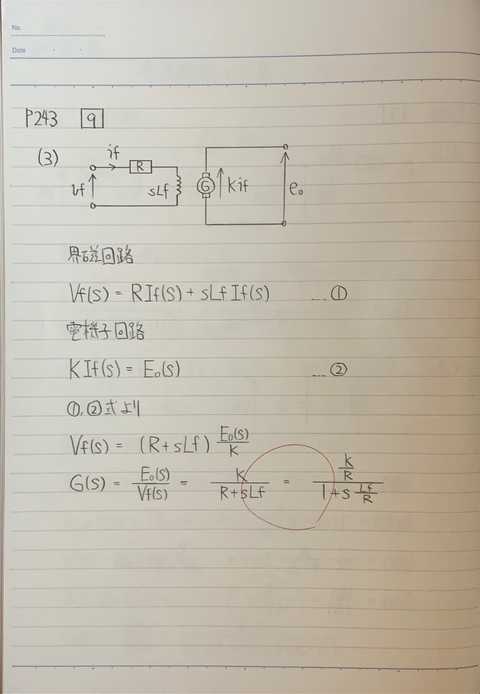 No.
Date
P243 9
(3)
if
R
vf
sLf
G
Kif
e₀
界磁回路
Vf(s) = RIf(s) + sLf If(s) ... ①
電機子回路
KIf(s) = E₀(s) ... ②
①,②式より
Vf(s) = (R+sLf) E₀(s)/K
G(s) = E₀(s)/Vf(s) = K/(R+sLf) = (K/R)/(1+s Lf/R)